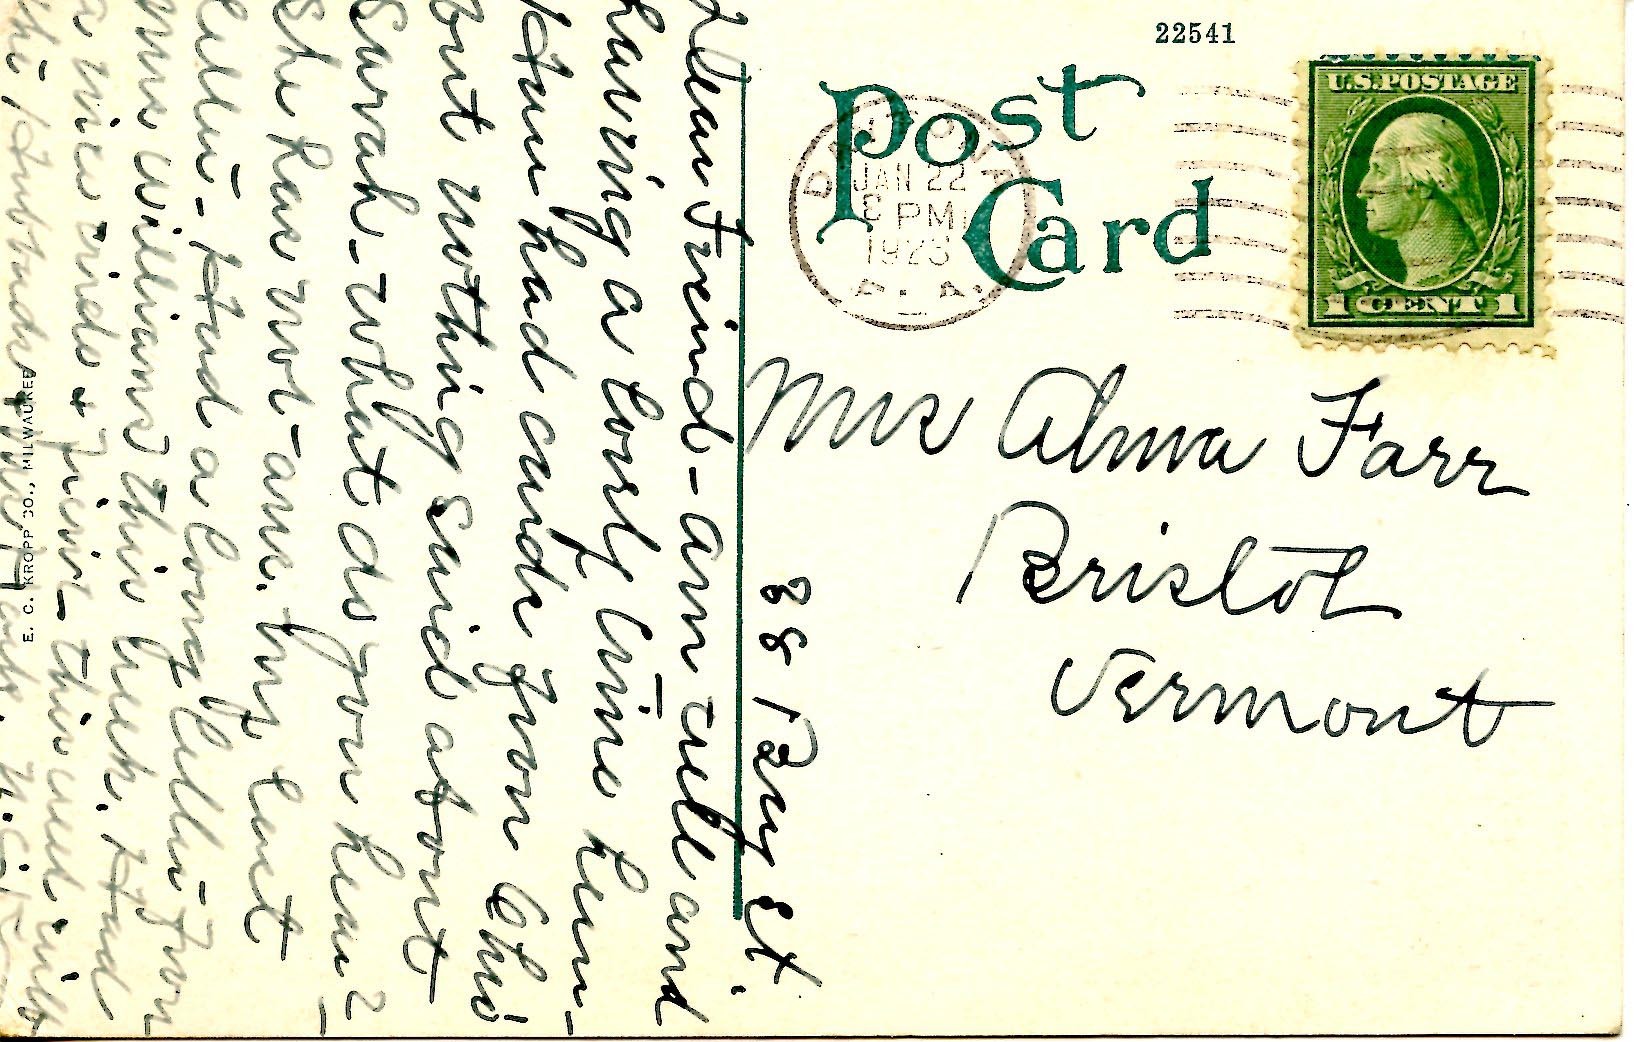 22541
Post
Card
JAN 22
PM
1923
U.S. POSTAGE
1 CENT 1
Mrs Alma Farr
Bristol
Vermont
88 Bay St.
Dear Freind - am well and
having a lovly time here -
had cards from
but nothing said about
Sarah - what do you hear?
She has not ans. my last
letter - Had a long letter from
Mrs Williams this week. Had
a nice ride + this week with
the
E. C. KROPP CO., MILWAUKEE